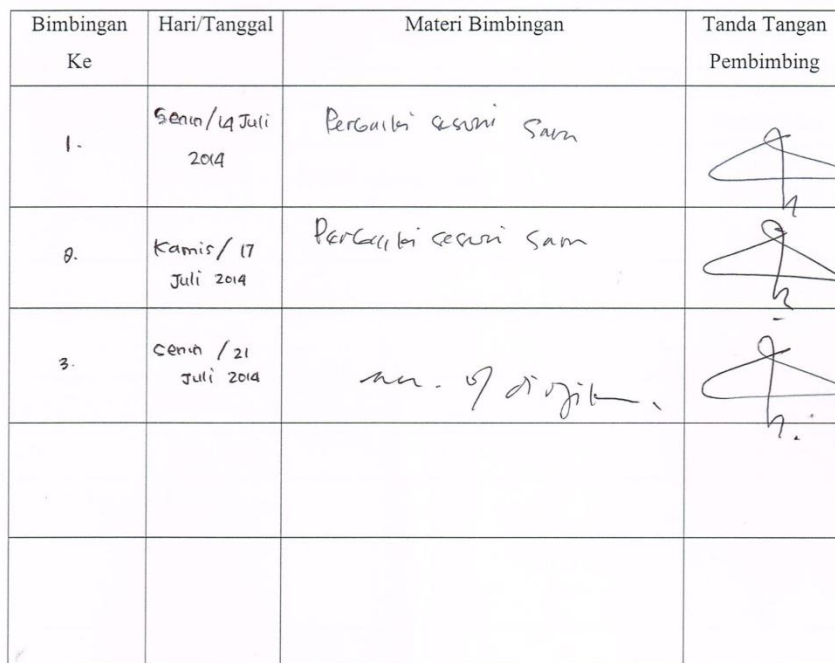 Bimbingan Ke
Hari/Tanggal
Materi Bimbingan
Tanda Tangan Pembimbing
1.
Senin/14 Juli
2014
Perbaiki sesuai saran
2.
Kamis/ 17
Juli 2014
Perbaiki sesuai saran
3.
Senin / 21
Juli 2014
diujikan.